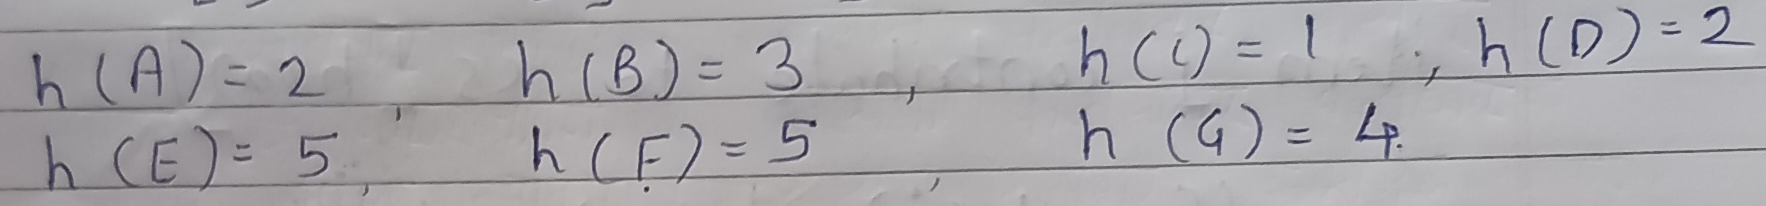 h(A) = 2, h(B) = 3, h(C) = 1, h(D) = 2
h(E) = 5, h(F) = 5, h(G) = 4.